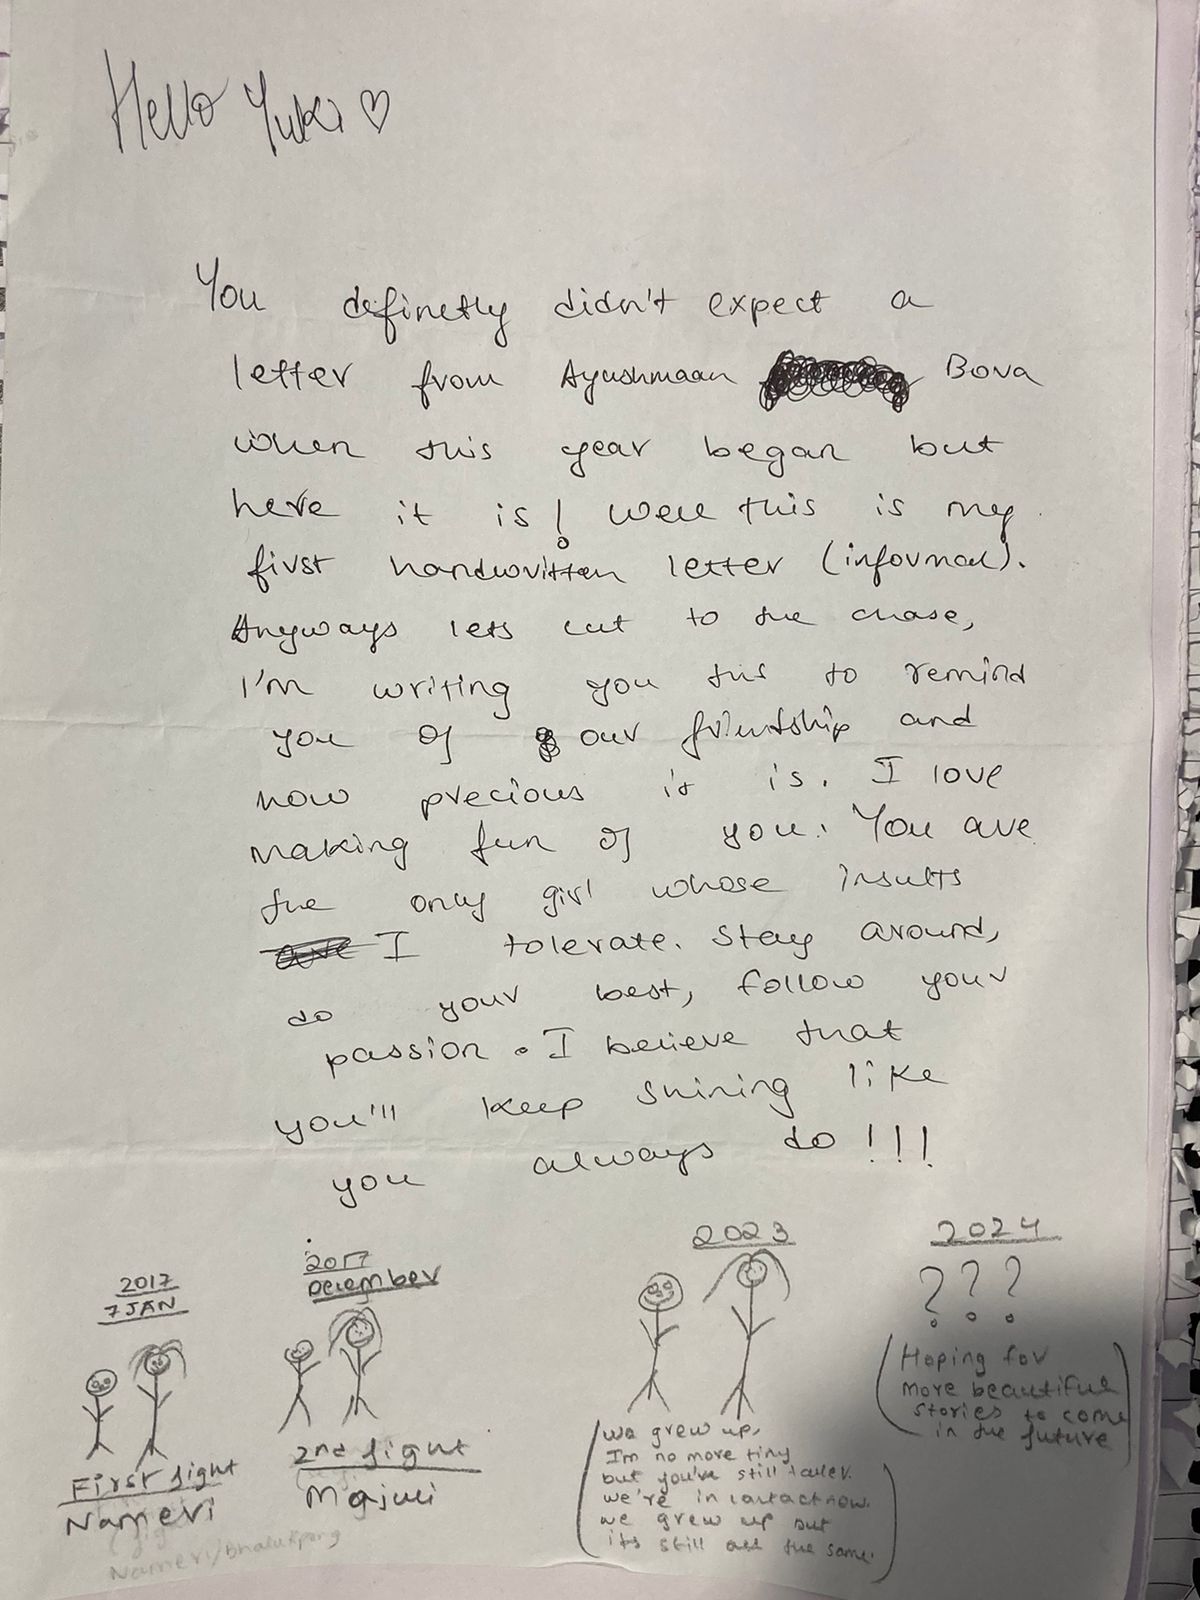 Hello Yuki ♡
You definetly didn't expect a
letter from Ayushmaan Bora
when this year began but
here it is! Well this is my
first handwritten letter (informal).
Anyways lets cut to the chase,
I'm writing you this to remind
you of our friendship and
how precious it is. I love
making fun of you. You are
the only girl whose insults
I tolerate. Stay around,
do your best, follow your
passion. I believe that
you'll keep shining like
you always do!!!
2017
7 JAN
First fight
Nameri
Nameri/Bhalukpong
2017
December
2nd fight
Majuli
2023
(we grew up,
I'm no more tiny
but you're still taller.
we're in contact now.
we grew up but
its still all the same.)
2024
???
(Hoping for
more beautiful
stories to come
in the future)